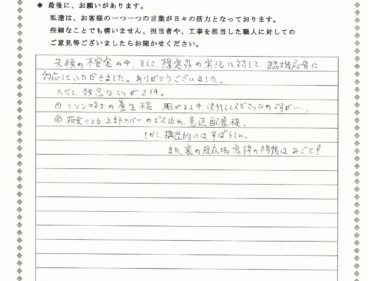 ◆ 最後に、お願いがあります。
私達は、お客様の一つ一つの言葉が日々の活力となっております。
些細なことでも構いません、担当者や、工事を担当した職人に対しての
ご意見等ございましたらお聞かせください。
天候の不安定の中、そして、想定外の劣化に対して、臨機応変に
対応していただきました。ありがとうございました。
ただし、残念なことが2件。
① リシン吹きの養生で 風が 中、決行してくださったのですが…。
② 板金による上部カバーの ビス止め
しかし、総合的にはすばらしい。
また、裏の 窓枠の は みごと!